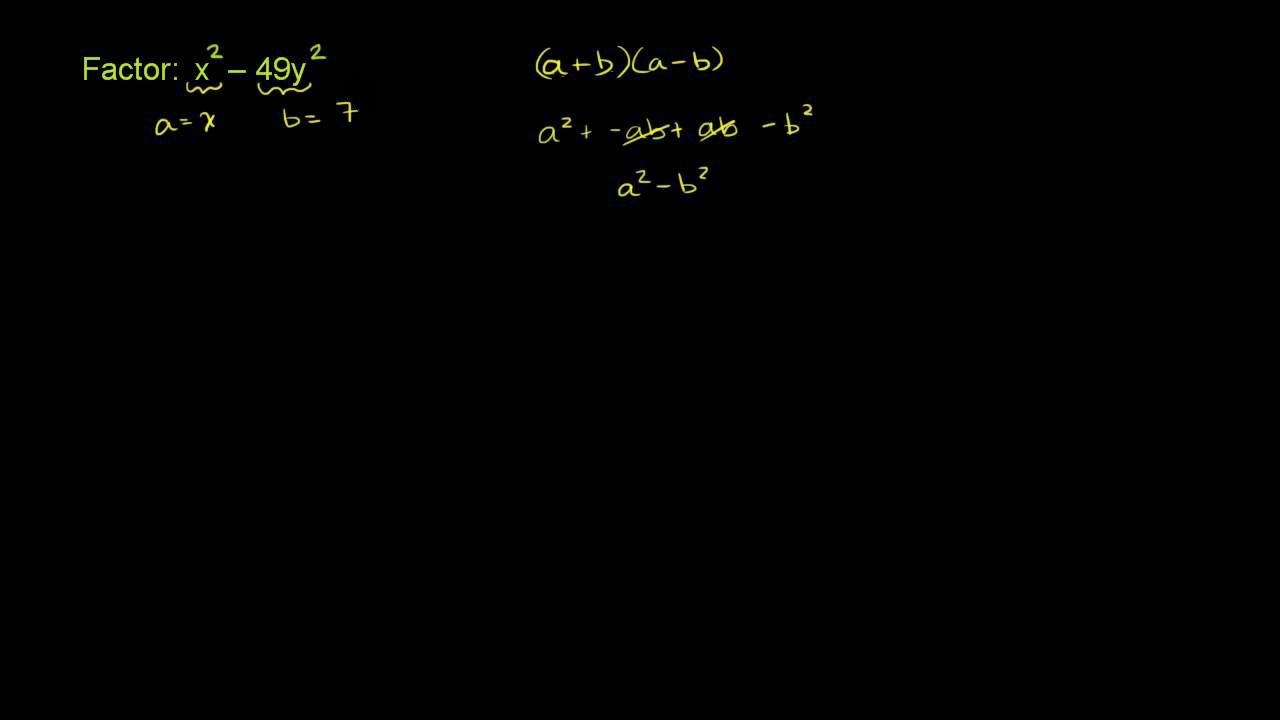 Factor: x² – 49y²
a = x b = 7
(a + b)(a - b)
a² + - ab + ab - b²
a² - b²